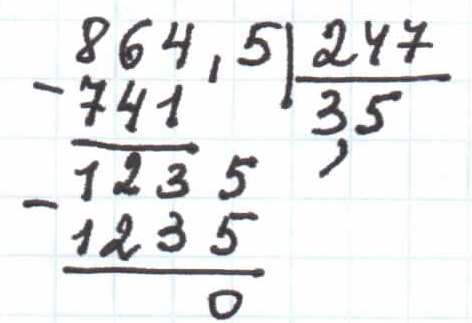 864,5 247
- 741 3,5
1235
- 1235
0